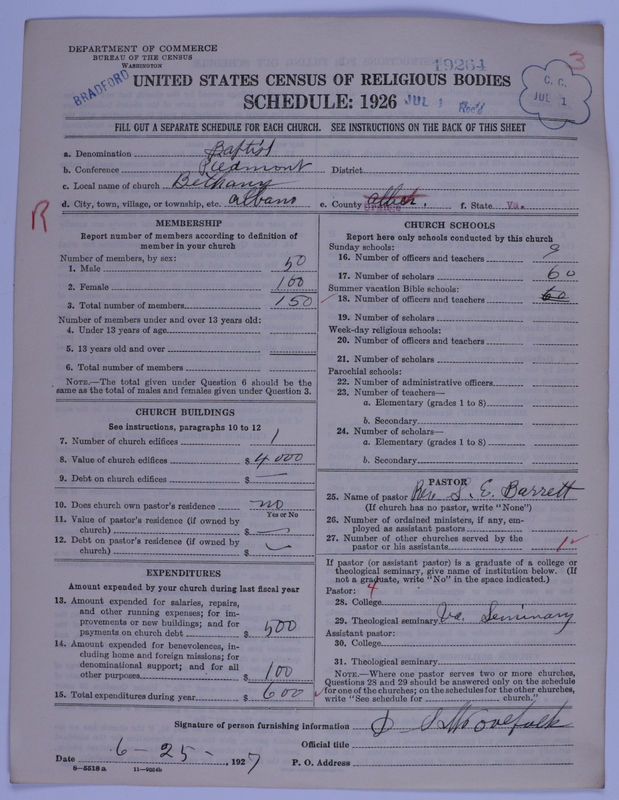 DEPARTMENT OF COMMERCE
BUREAU OF THE CENSUS
WASHINGTON
BRADFORD
19264
3
C. C.
JUL 1
UNITED STATES CENSUS OF RELIGIOUS BODIES
SCHEDULE: 1926
JUL 1 Rec'd
FILL OUT A SEPARATE SCHEDULE FOR EACH CHURCH. SEE INSTRUCTIONS ON THE BACK OF THIS SHEET
a. Denomination Baptist
b. Conference Piedmont District
c. Local name of church Bethany
d. City, town, village, or township, etc. e. County f. State Va.
R
MEMBERSHIP
Report number of members according to definition of
member in your church
Number of members, by sex:
1. Male 50
2. Female 100
3. Total number of members 150
Number of members under and over 13 years old:
4. Under 13 years of age
5. 13 years old and over
6. Total number of members
NOTE.—The total given under Question 6 should be the
same as the total of males and females given under Question 3.
CHURCH BUILDINGS
See instructions, paragraphs 10 to 12
7. Number of church edifices 1
8. Value of church edifices $ 4000
9. Debt on church edifices $ —
10. Does church own pastor's residence no
Yes or No
11. Value of pastor's residence (if owned by
church) $
12. Debt on pastor's residence (if owned by
church) $
EXPENDITURES
Amount expended by your church during last fiscal year
13. Amount expended for salaries, repairs,
and other running expenses; for im-
provements or new buildings; and for
payments on church debt $ 500
14. Amount expended for benevolences, in-
cluding home and foreign missions; for
denominational support; and for all
other purposes $ 100
15. Total expenditures during year $ 600
CHURCH SCHOOLS
Report here only schools conducted by this church
Sunday schools:
16. Number of officers and teachers 9
17. Number of scholars 60
Summer vacation Bible schools:
18. Number of officers and teachers 60
19. Number of scholars
Week-day religious schools:
20. Number of officers and teachers
21. Number of scholars
Parochial schools:
22. Number of administrative officers
23. Number of teachers—
a. Elementary (grades 1 to 8)
b. Secondary
24. Number of scholars—
a. Elementary (grades 1 to 8)
b. Secondary
PASTOR
25. Name of pastor Rev. S. E. Barrett
(If church has no pastor, write "None")
26. Number of ordained ministers, if any, em-
ployed as assistant pastors
27. Number of other churches served by the
pastor or his assistants 1
If pastor (or assistant pastor) is a graduate of a college or
theological seminary, give name of institution below. (If
not a graduate, write "No" in the space indicated.)
Pastor: 4
28. College
29. Theological seminary Va. Seminary
Assistant pastor:
30. College
31. Theological seminary
NOTE.—Where one pastor serves two or more churches,
Questions 28 and 29 should be answered only on the schedule
for one of the churches; on the schedules for the other churches,
write "See schedule for church."
Signature of person furnishing information
Official title
Date 6-25-, 1927 P. O. Address
8—5518 a 11—9054b